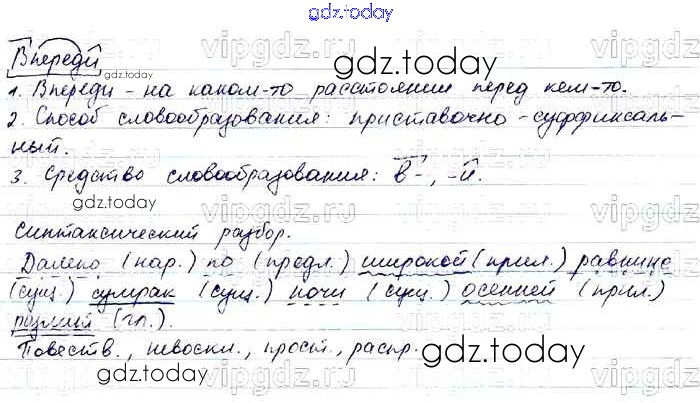 gdz.today
Впереди
1. Впереди - на каком-то расстоянии перед кем-то.
2. Способ словообразования: приставочно-суффиксаль-
ный.
3. Средство словообразования: в-, -и.
Синтаксический разбор.
Далеко (нар.) по (предл.) широкой (прил.) равнине
(сущ.) сумрак (сущ.) ночи (сущ.) осенней (прил.)
разлит (гл.).
Повеств., невоскл., прост., распр.